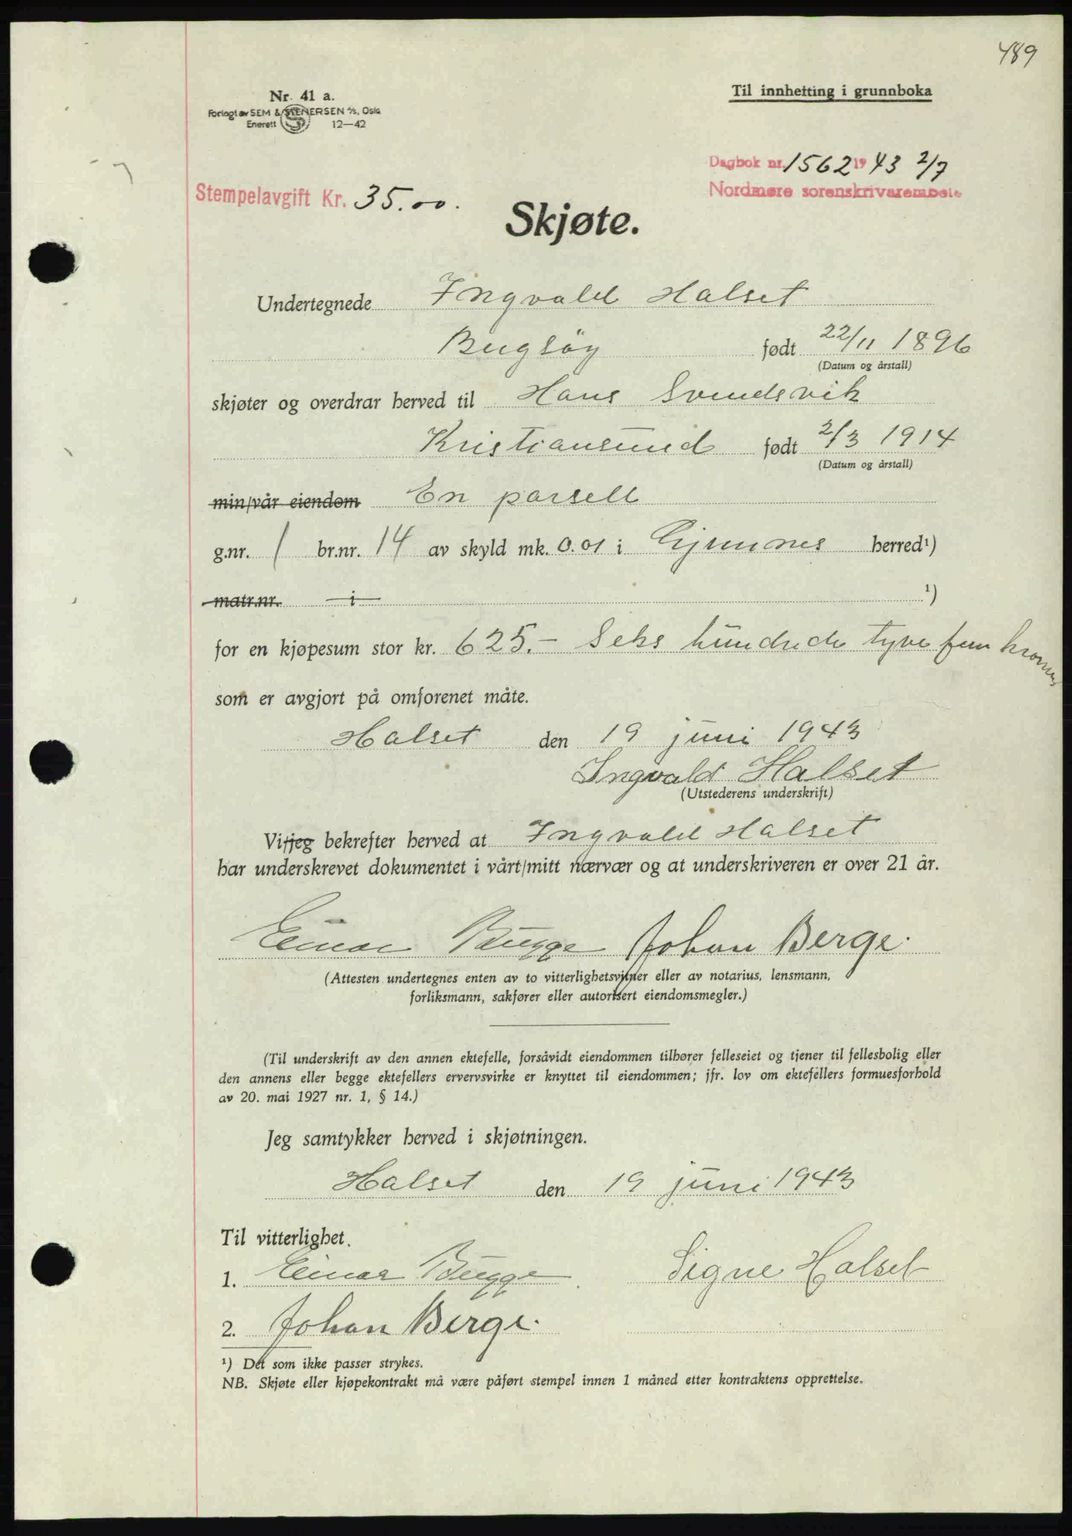 489
Nr. 41 a.
Forlagt av SEM & STENERSEN A/S, Oslo
Enerett 12—42
Til innhefting i grunnboka
Dagbok nr. 1562 1943 2/7
Nordmøre sorenskriverembete
Stempelavgift Kr. 35.00.
Skjøte.
Undertegnede Ingvald Halset
Bugsøy født 22/11 1896
(Datum og årstall)
skjøter og overdrar herved til Hans Svendsvik
Kristiansund født 2/3 1914
(Datum og årstall)
min/vår eiendom En parsell
g.nr. 1 br.nr. 14 av skyld mk. 0.01 i Gjemnes herred¹)
matr.nr. i ¹)
for en kjøpesum stor kr. 625.- Seks hundrede tyve fem kroner
som er avgjort på omforenet måte.
Halset den 19 juni 1943
Ingvald Halset
(Utstederens underskrift)
Vi/jeg bekrefter herved at Ingvald Halset
har underskrevet dokumentet i vårt/mitt nærvær og at underskriveren er over 21 år.
Einar Bugge Johan Berge.
(Attesten undertegnes enten av to vitterlighetsvitner eller av notarius, lensmann,
forliksmann, sakfører eller autorisert eiendomsmegler.)
(Til underskrift av den annen ektefelle, forsåvidt eiendommen tilhører felleseiet og tjener til fellesbolig eller
den annens eller begge ektefellers ervervsvirke er knyttet til eiendommen; jfr. lov om ektefellers formuesforhold
av 20. mai 1927 nr. 1, § 14.)
Jeg samtykker herved i skjøtningen.
Halset den 19 juni 1943
Til vitterlighet.
1. Einar Bugge Signe Halset
2. Johan Berge.
¹) Det som ikke passer strykes.
NB. Skjøte eller kjøpekontrakt må være påført stempel innen 1 måned etter kontraktens opprettelse.